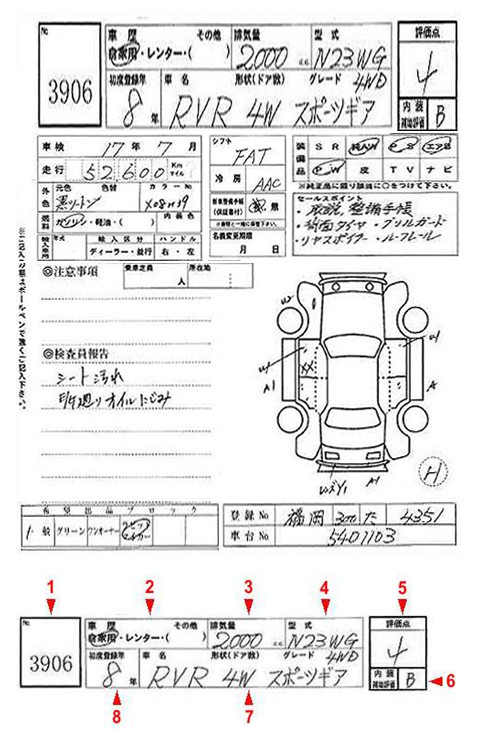 No. 3906
車歴 その他 排気量 型式 評価点
自家用・レンター・( ) 2000 c.c. N23WG 4
初度登録年 車名 形状(ドア数) グレード 4WD 内装補助評価
8年 RVR 4W スポーツギア B
車検 17年 7月 シフト FAT
走行 52,600 Km マイル 冷房 AAC
装備品 SR PAW PS エアB
PW 皮 TV ナビ
※純正品に限り該当に○をつけて下さい。
外色 元色 色替 カラーNo.
黒ツートン X08
燃料 ガソリン・軽油・( ) 内装色
新車整備手帳(保証書付) 無
名義変更期限 月 日
輸入車用 年式 輸入区分 ハンドル
ディーラー・並行 右・左
セールスポイント
・取説,整備手帳
・背面タイヤ・グリルガード
・リヤスポイラー・ルーフレール
◎注意事項 乗車定員 人 所在地
◎検査員報告
シート汚れ
オイルにじみ
※記入の際はボールペンで強くご記入下さい。
W
A1
XX
A
A1
H
希望出品ブロック
一般 グリーン ワンオーナー
登録No 福岡 300 た 4351
車台No 5401103
1 2 3 4 5
No. 3906
車歴 その他 排気量 型式 評価点
自家用・レンター・( ) 2000 c.c. N23WG 4
初度登録年 車名 形状(ドア数) グレード 4WD 内装補助評価
8年 RVR 4W スポーツギア B 6
8 7